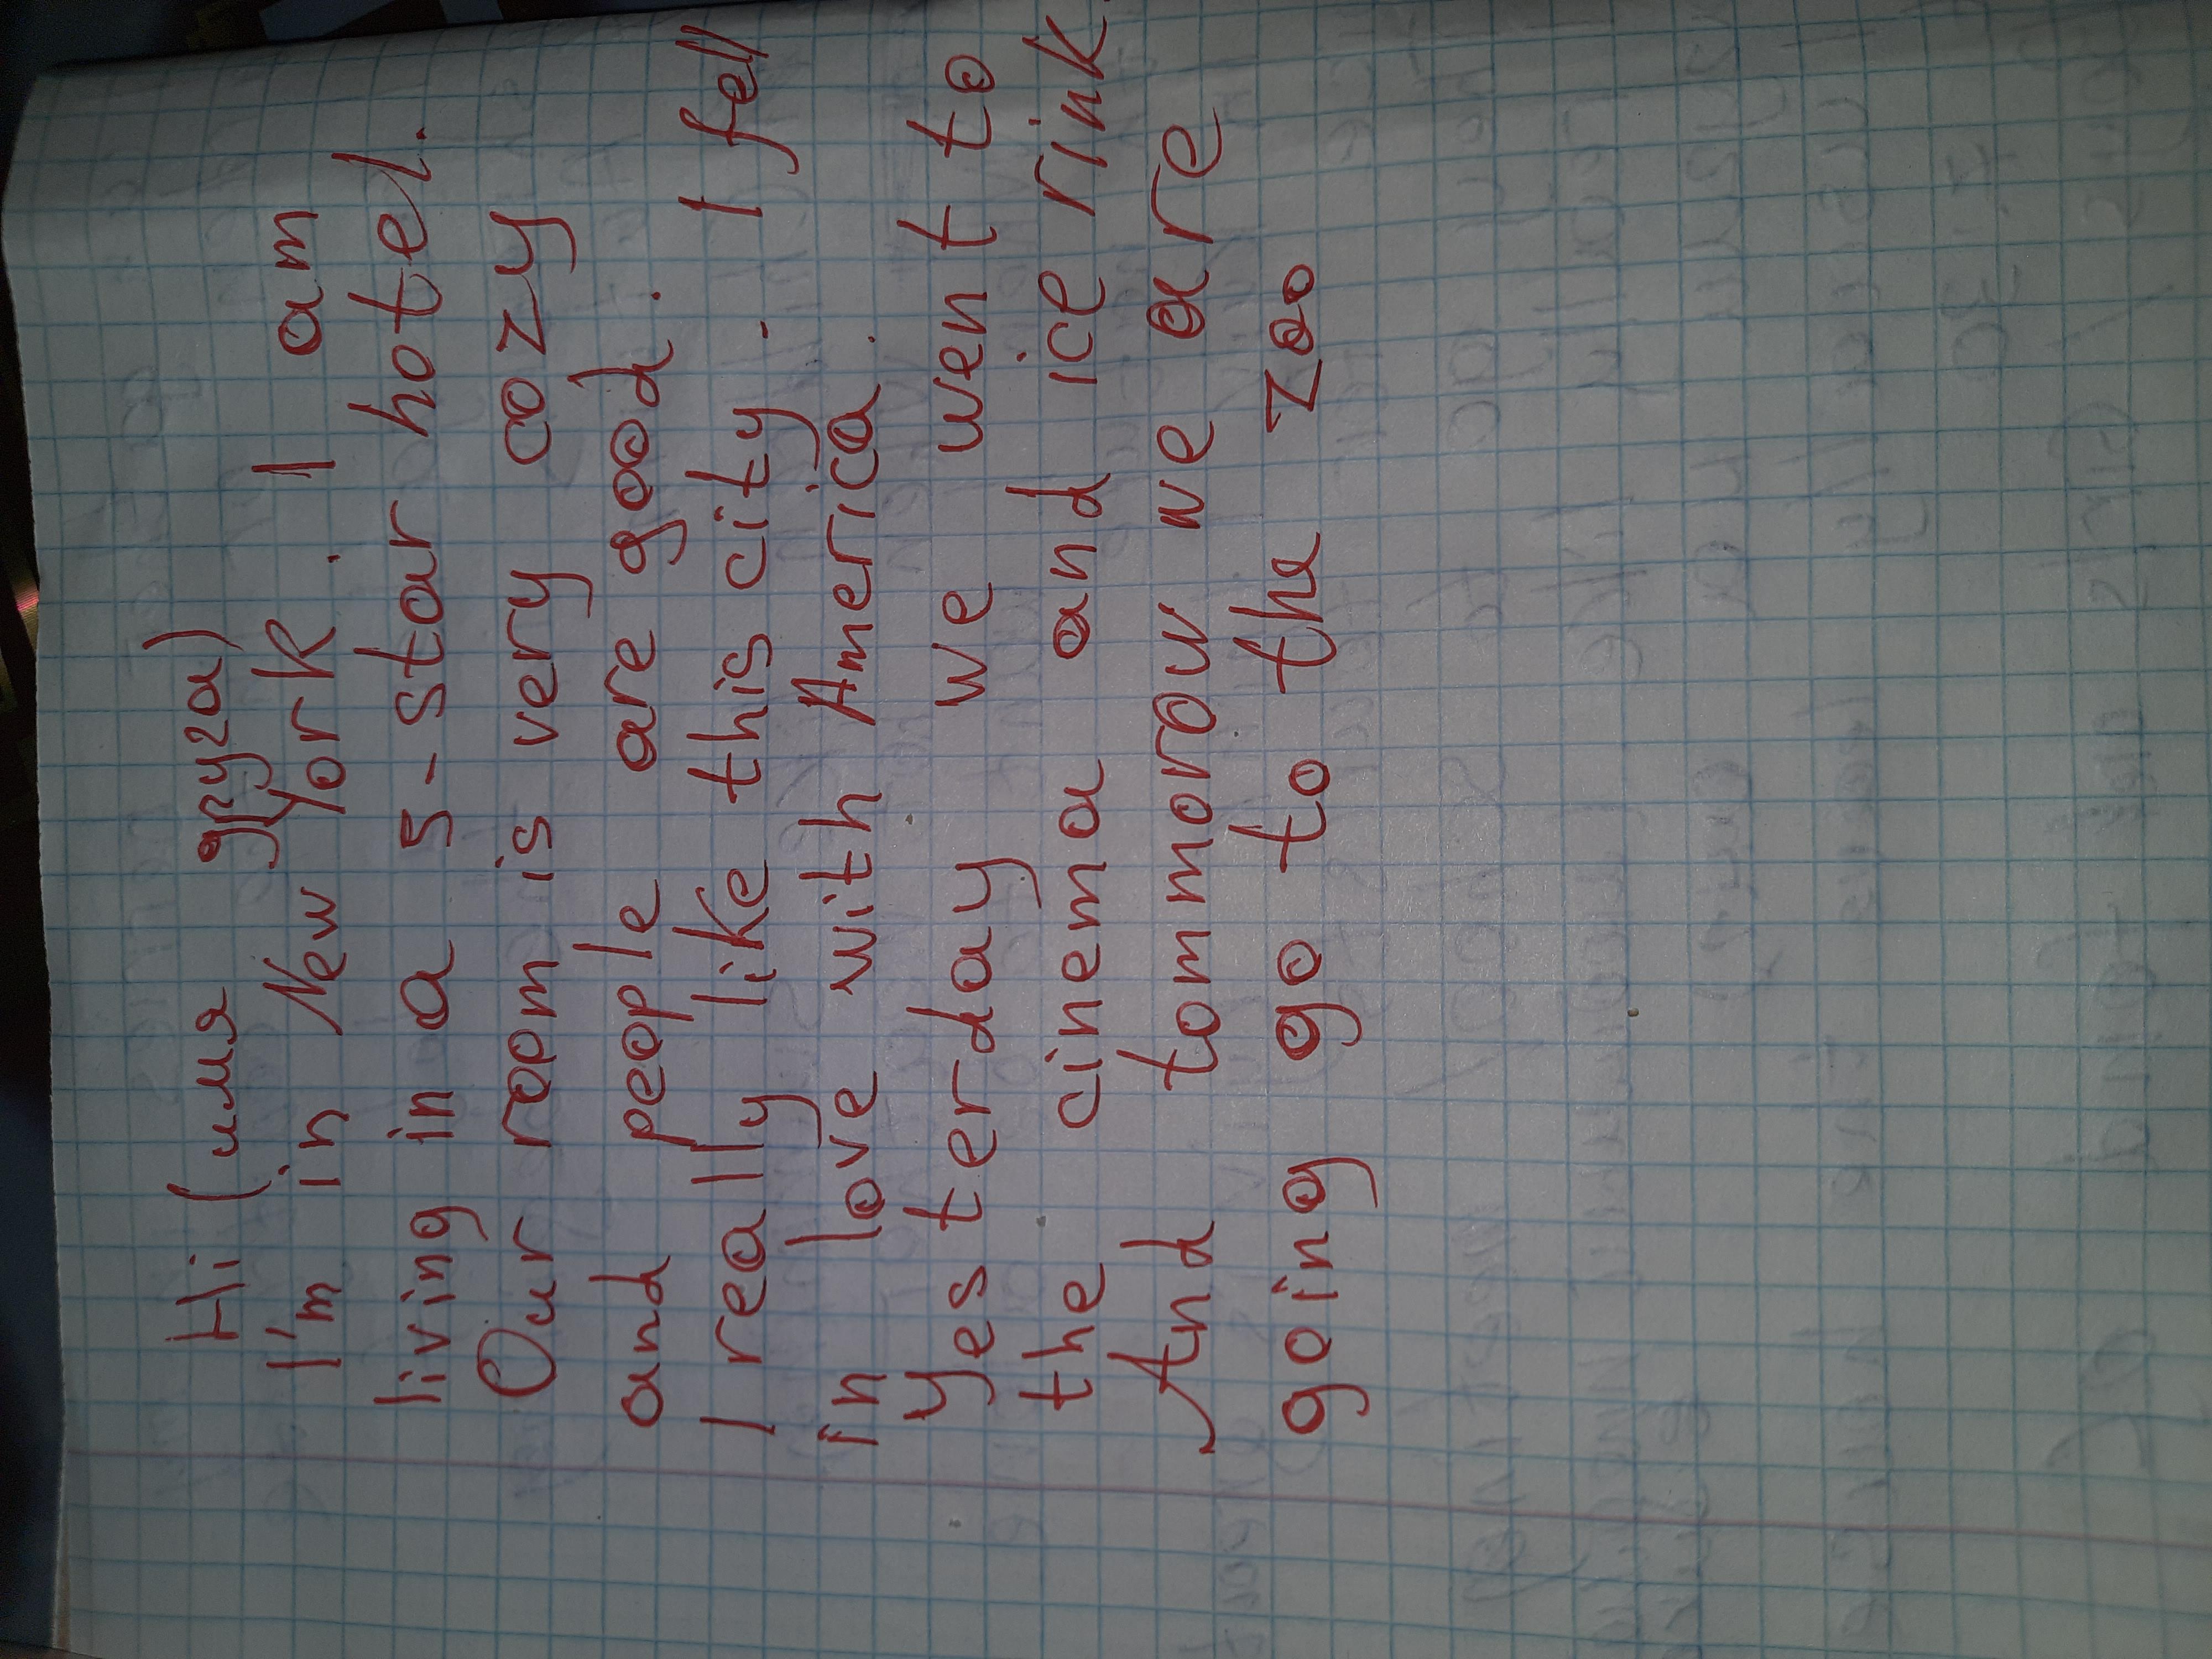 Hi (имя друга)
I'm in New York. I am
living in a 5-star hotel.
Our room is very cozy
and people are good.
I really like this city. I fell
in love with America.
Yesterday we went to
the cinema and ice rink.
And tommorow we are
going go to the zoo